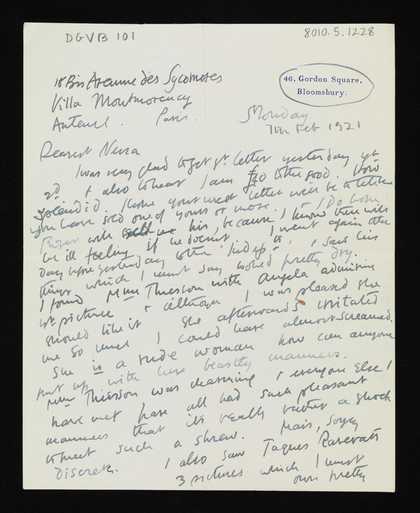 DGVB 101
8010.5.1228
46, Gordon Square,
Bloomsbury.
18 Bis Avenue des Sycomores
Villa Montmorency
Auteuil. Paris.
Monday
7th Feb 1921
Dearest Nessa
I was very glad to get yr letter yesterday
& also to hear I am £20 to the good. How
splendid. I hope your next letter will be to tell me
you have sold one of yours or more. I do hope
Roger will sell his, because I know there will
be ill feeling if he doesn't. I went again the
day before yesterday to the & saw his
things which I must say looked pretty dry.
I found Mme Thiesson with Angela admiring
yr picture & although I was pleased she
should like it she afterwards irritated
me so much I could have almost screamed.
She is a rude woman how can anyone
put up with her beastly manners.
Mme Thiesson was charming & everyone else I
have met have all had such pleasant
manners that it's really rather a shock
to meet such a shrew. Mais, soyez
discrete. I also saw Jaques Raverat's
3 pictures which I must
own pretty